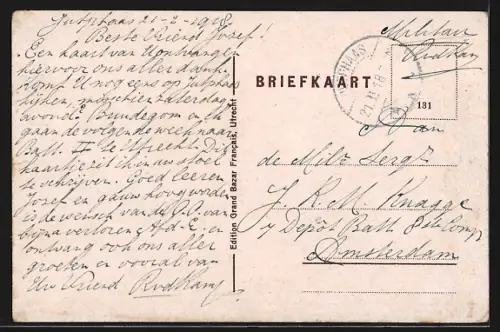 Jutphaas 21-2-1918
Beste Vriend Josef!
Een kaart van U ontvangen
hiervoor ons aller dank.
Komt U nog eens op Jutphaas
kijken, misschien zaterdag
avond? Brundegom en ik
gaan de volgende week naar
Batt. II te Utrecht. Dit
kaartje zit ik in uw stoel
te schrijven. Goed leeren
Josef en gauw hoog worden
is de wensch van de O.O. van
bijna verloren Afd. E. en
ontvang ook ons aller
groeten en vooral van
Uw Vriend RvdKamp
Edition Grand Bazar Français, Utrecht
BRIEFKAART
JUTPHAAS
21.II.18
Militair
RvdKamp
131
Aan
de Milt. Sergt
J. K. M. Knagge
7 Depôt Batt Comp
Amsterdam